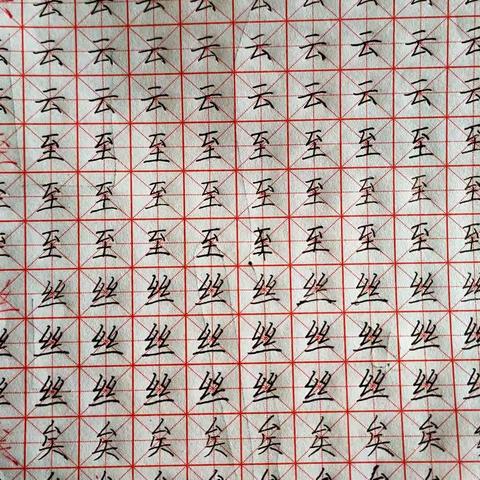 云云云云云云云云云
云云云云云云云云云
云云云云云云云云云
至至至至至至至至至
至至至至至至至至至
至至至至至至至至
丝丝丝丝丝丝丝丝丝
丝丝丝丝丝丝丝丝丝
丝丝丝丝丝丝丝丝丝
矣矣矣矣矣矣矣矣